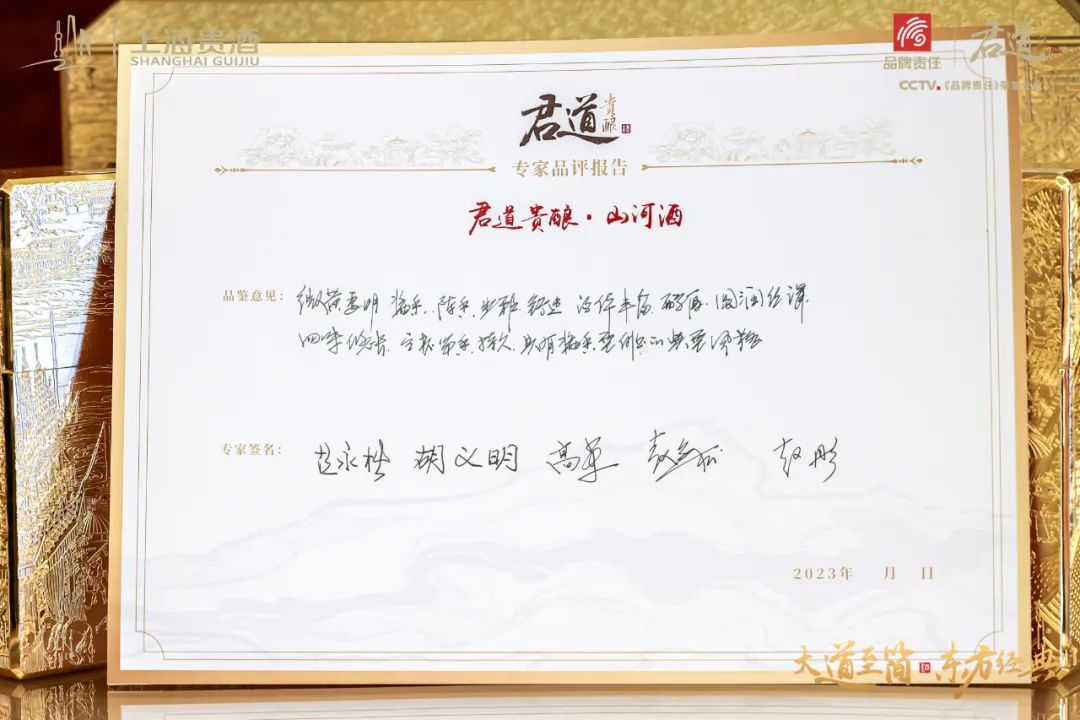 上海贵酒
SHANGHAI GUIJIU
品牌责任
君道
CCTV.《品牌责任》荣誉企业
君道
贵酿
专家品评报告
君道贵酿·山河酒
品鉴意见：微黄透明 酱香、陈香 幽雅 舒适 酒体丰富 醇厚、圆润 细腻
回味悠长、空杯留香持久、具有酱香型白酒的典型风格
专家签名： 胡义明 高军 赵彤
2023年 月 日
大道至简 东方经典